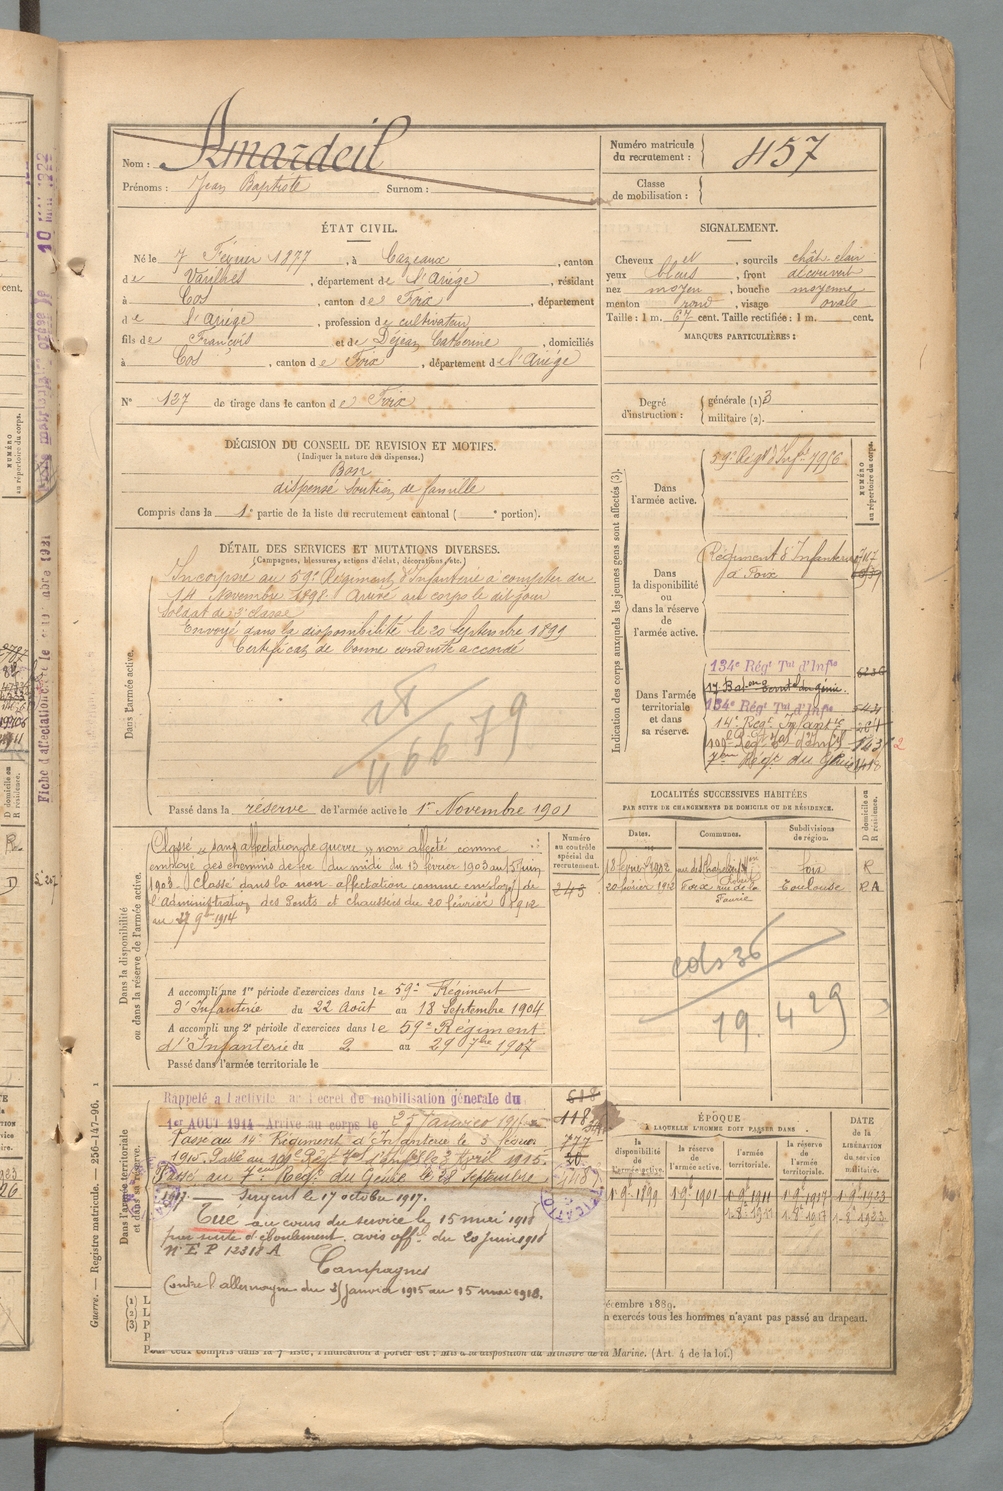 Nom : Amardeil
Prénoms : Jean Baptiste Surnom :
Numéro matricule du recrutement : 457
Classe de mobilisation :
ÉTAT CIVIL.
Né le 7 Février 1877, à Cazeaux, canton
de Varilhes, département de l'Ariége, résidant
à Cos, canton de Foix, département
de l'Ariége, profession de cultivateur
fils de François et de Déjean Catherine, domiciliés
à Cos, canton de Foix, département de l'Ariége
N° 137 de tirage dans le canton de Foix
SIGNALEMENT.
Cheveux et, sourcils chât. clair
yeux bleus, front découvert
nez moyen, bouche moyenne
menton rond, visage ovale
Taille : 1 m. 67 cent. Taille rectifiée : 1 m. cent.
MARQUES PARTICULIÈRES :
Degré d'instruction : générale (1) 3
militaire (2).
DÉCISION DU CONSEIL DE REVISION ET MOTIFS.
(Indiquer la nature des dispenses.)
Bon
dispensé soutien de famille
Compris dans la 1e partie de la liste du recrutement cantonal ( e portion).
DÉTAIL DES SERVICES ET MUTATIONS DIVERSES.
(Campagnes, blessures, actions d'éclat, décorations, etc.)
Dans l'armée active.
Incorporé au 59e Régiment d'Infanterie à compter du
14 Novembre 1898. Arrivé au corps le dit jour
Soldat de 2e classe
Envoyé dans la disponibilité le 20 Septembre 1899
Certificat de bonne conduite accordé
Passé dans la réserve de l'armée active le 1er Novembre 1901
Indication des corps auxquels les jeunes gens sont affectés (3).
NUMÉRO au répertoire du corps.
Dans l'armée active.
59e Régt d'Infie 7956
Dans la disponibilité ou dans la réserve de l'armée active.
Régiment d'Infanterie
à Foix
Dans l'armée territoriale et dans sa réserve.
134e Régt Tal d'Infie
17 Baton Territal du génie.
134e Régt Tal d'Infie
14e Regt Infantie
7eme Régt du Génie
LOCALITÉS SUCCESSIVES HABITÉES
PAR SUITE DE CHANGEMENTS DE DOMICILE OU DE RÉSIDENCE.
Dates. Communes. Subdivisions de région. D domicile ou R résidence.
18 février 1902 Foix R
20 février 1913 Foix rue de la Faurie Toulouse RA
19. 4 29
Dans la disponibilité ou dans la réserve de l'armée active.
Numéro au contrôle spécial du recrutement.
243
Classé « sans affectation de guerre » non affecté comme
employé des chemins de fer du midi du 13 février 1903 au 15 juin
1903. Classé dans la non affectation comme employé de
l'Administration des Ponts et chaussées du 20 février 1912
au 27 9bre 1914
A accompli une 1re période d'exercices dans le 59e Régiment
d'Infanterie du 22 Août au 18 Septembre 1904
A accompli une 2e période d'exercices dans le 59e Régiment
d'Infanterie du 2 au 29 7bre 1907
Passé dans l'armée territoriale le
Dans l'armée territoriale
Rappelé à l'activité par Décret de mobilisation générale du
1er AOUT 1914 - Arrivé au corps le 25 Janvier 1915
Passé au 14e Régiment d'Infanterie le 3
1915. Passé au 109e Régt Tal d'Infie le 3 Avril 1915.
Passé au 7eme Regt du Génie le 28 Septembre
1917. — Sergent le 17 octobre 1917.
Tué au cours du service le 15 mai 1918
par suite d'éboulement. avis offel du 20 juin 1918
N° E P 12318 A
Campagnes
Contre l'allemagne du 25 janvier 1915 au 15 mai 1918.
ÉPOQUE
A LAQUELLE L'HOMME DOIT PASSER DANS :
la disponibilité de l'armée active. la réserve de l'armée active. l'armée territoriale. la réserve de l'armée territoriale. DATE de la LIBÉRATION du service militaire.
1 9e 1899 1 9e 1901 1 9e 1911 1 9e 1917 1 9e 1923
écembre 1889.
n exercés tous les hommes n'ayant pas passé au drapeau.
Pour ceux compris dans la 7e liste, l'indication à porter est : Mis à la disposition du Ministre de la Marine. (Art. 4 de la loi.)
Guerre. — Registre matricule. — 256-147-96. 1